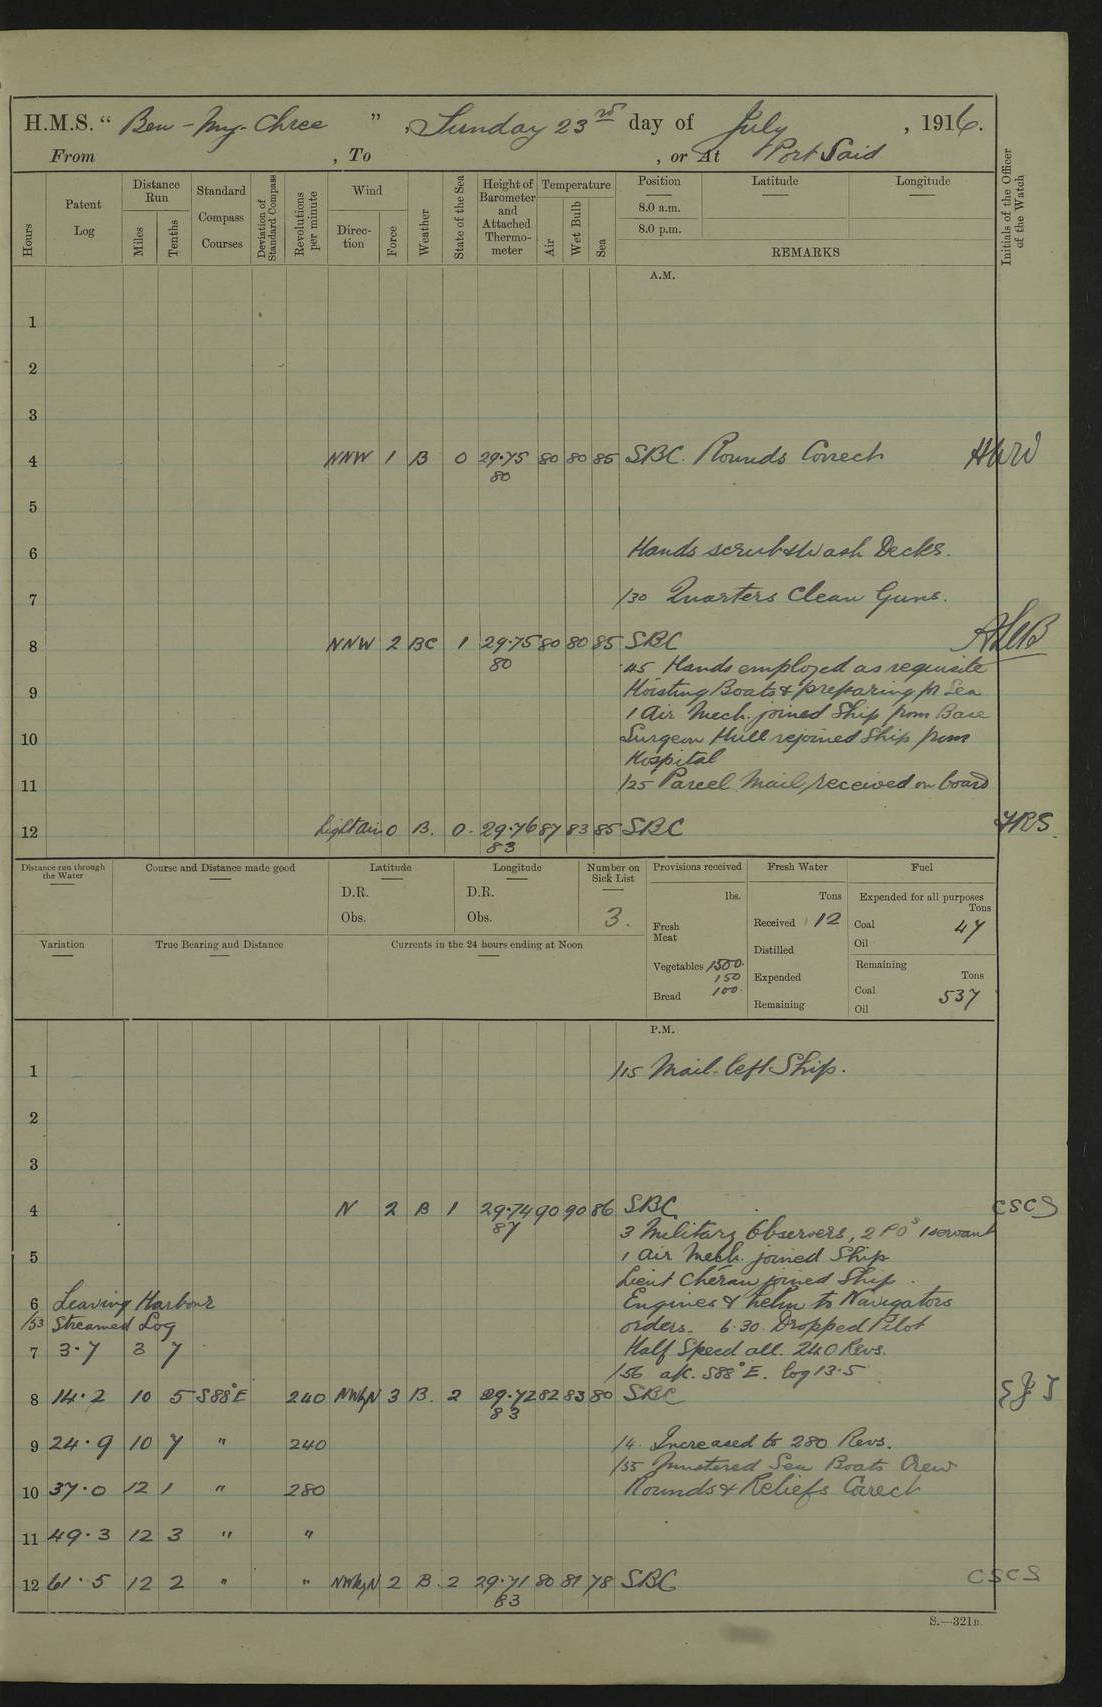 H.M.S. “ Ben-My-Chree ” , Sunday 23rd day of July , 1916.
From , To , or At Port Said
Hours
Patent Log
Distance Run
Miles
Tenths
Standard Compass Courses
Deviation of Standard Compass
Revolutions per minute
Wind
Direction
Force
Weather
State of the Sea
Height of Barometer and Attached Thermometer
Temperature
Air
Wet Bulb
Sea
Position
8.0 a.m.
8.0 p.m.
Latitude
Longitude
REMARKS
Initials of the Officer of the Watch
A.M.
1
2
3
4 NNW 1 B 0 29.75 80 80 85 SBC. Rounds Correct HWW
80
5
6 Hands scrub & Wash Decks.
7 /30 Quarters Clean Guns.
8 NNW 2 BC 1 29.75 80 80 85 SBC
80 .45 Hands employed as requisite
9 Hoisting Boats & preparing for Sea
1 Air Mech. joined Ship from Base
10 Surgeon Hull rejoined Ship from
Hospital
11 /25 Parcel Mail received on board
12 Light Air 0 B. 0. 29.76 87 83 85 SBC FRS.
83
Distance run through the Water
Course and Distance made good
Latitude
D.R.
Obs.
Longitude
D.R.
Obs.
Number on Sick List
3.
Provisions received
lbs.
Fresh Meat
Vegetables 1500.
150
Bread 100.
Fresh Water
Tons
Received 12
Distilled
Expended
Remaining
Fuel
Expended for all purposes
Tons
Coal 47
Oil
Remaining
Tons
Coal 537
Oil
Variation
True Bearing and Distance
Currents in the 24 hours ending at Noon
P.M.
1 /15 Mail left Ship.
2
3
4 N 2 B 1 29.74 90 90 86 SBC CSCS
87 3 Military Observers, 2 POs 1 servant
5 1 Air Mech. joined Ship
Lieut Chéran joined Ship.
6 Leaving Harbour Engines & helm to Navigators
/53 Streamed Log orders. 6.30. Dropped Pilot
7 3.7 3 7 Half Speed all. 240 Revs.
/56 a/c. S88°E. log 13.5
8 14.2 10 5 S88°E 240 NWbyN 3 B. 2 29.72 82 83 80 SBC
83
9 24.9 10 7 " 240 /4 Increased to 280 Revs.
/55 Mustered Sea Boats Crew
10 37.0 12 1 " 280 Rounds & Reliefs Correct
11 49.3 12 3 " "
12 61.5 12 2 " " NWbyN 2 B. 2 29.71 80 81 78 SBC CSCS
83
S.—321B.